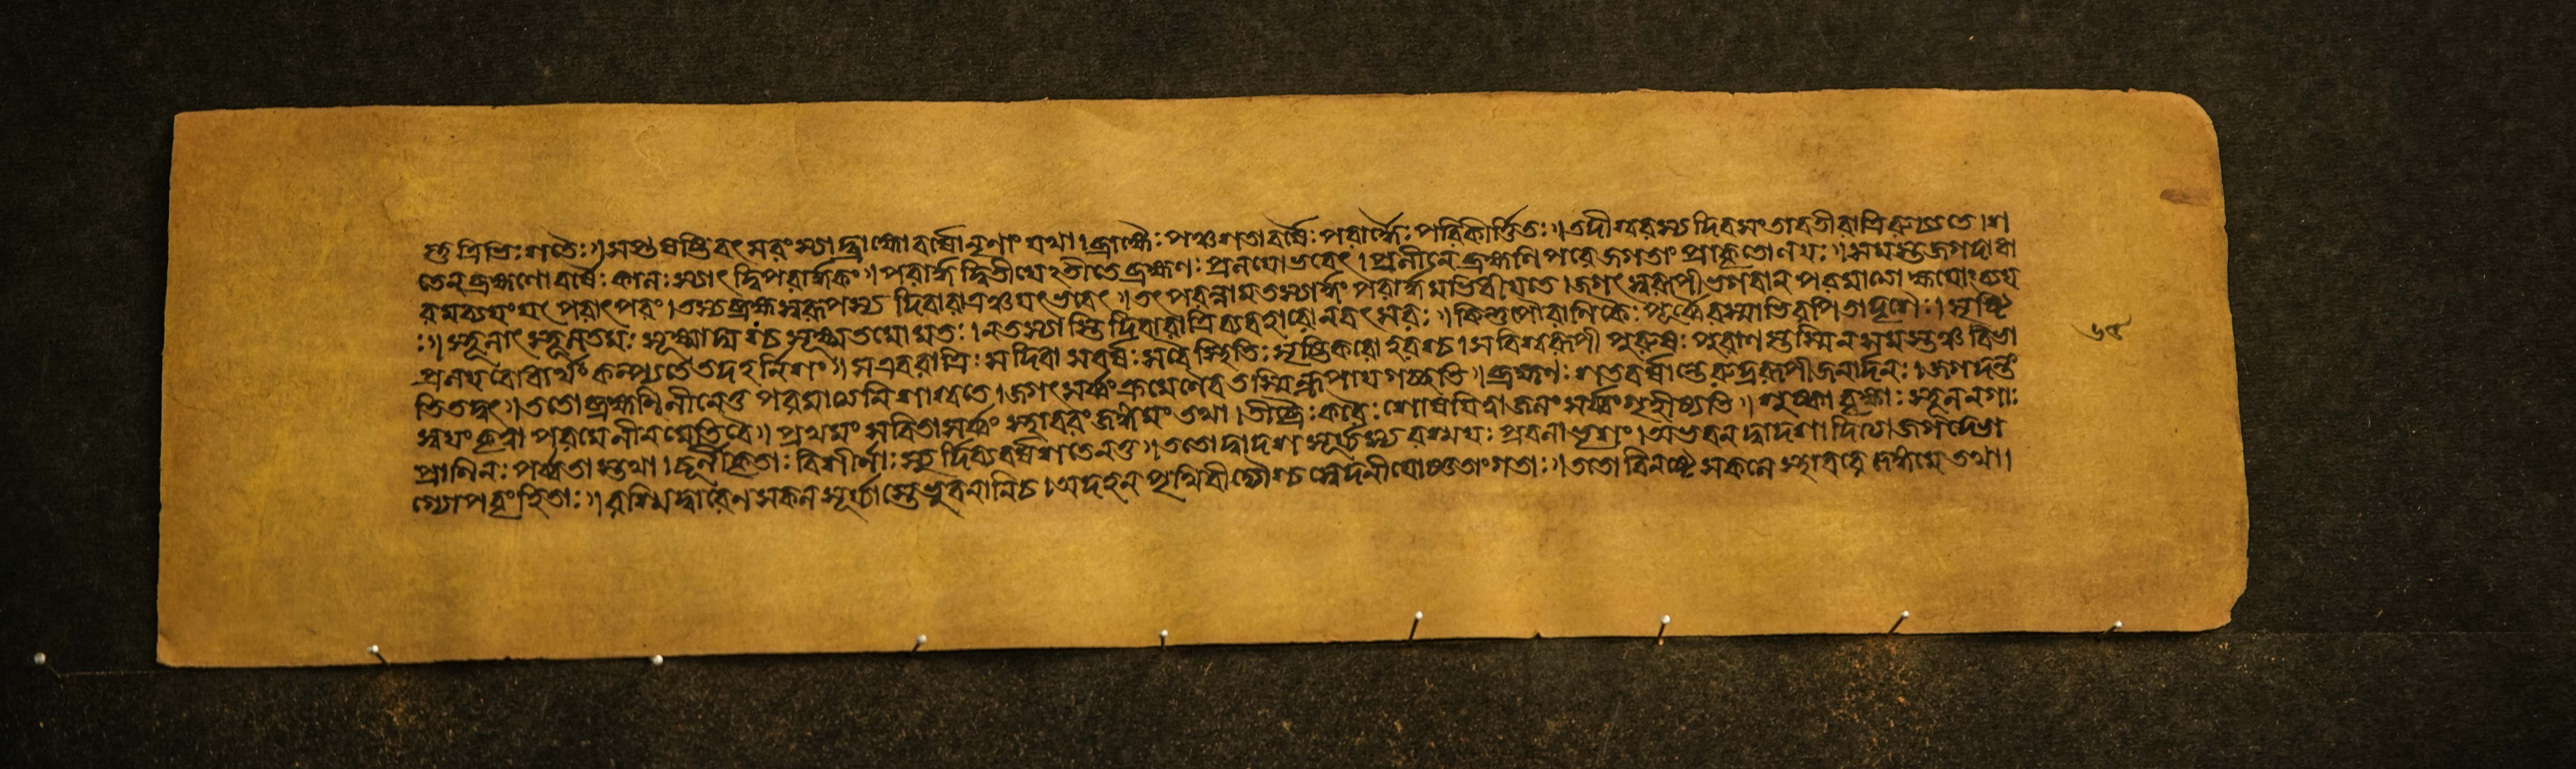 স্তু ত্রিভিঃ শতৈঃ ৷৷ সপ্তষষ্টিবৎসরং স্যাদ্ব্রাহ্মো বর্ষো নৃণাং যথা । ব্রাহ্মৈঃ পঞ্চশতাবর্ষৈঃ পরার্দ্ধঃ পরিকীর্ত্তিতঃ ৷৷ তদীশ্বরস্য দিবসং তাবতী রাত্রিরুচ্যতে । শ
তেন ব্রহ্মণো বর্ষৈঃ কালঃ স্যাৎ দ্বিপরার্দ্ধকং ৷৷ পরার্দ্ধ দ্বিতীয়েঽতীতে ব্রহ্মণঃ প্রলয়ো ভবেৎ । প্রলীনে ব্রহ্মণি পরে জগতাং প্রাকৃতো লয়ঃ ৷৷ সমস্তজগদাধা
রমব্যয়ং যৎ পরাৎপরং । তস্য ব্রহ্মস্বরূপস্য দিবারাত্রঞ্চ যৎ ভবেৎ ৷৷ তৎ পরন্নাম তস্যার্দ্ধং পরার্দ্ধমভিধীয়তে । জগৎস্বরূপী ভগবান পরমাত্মা হ্যব্যয়
ঃ ৷৷ স্থূলাৎ স্থূলতমঃ সূক্ষ্মাদ্যশ্চ সূক্ষ্মতমো মতঃ । ন তস্যাস্তি দিবারাত্রিব্যবহারো ন বৎসরঃ ৷৷ কিন্তু পৌরাণিকৈঃ পূর্ব্বৈরস্মাভিরপি তাদৃশৈঃ । সৃষ্টি
প্রলয়বোধার্থং কল্প্যতে তদহর্নিশং ৷৷ স এব রাত্রিঃ স দিবা স বর্ষঃ স বৈ স্থিতিঃ সৃষ্টিকরো হরশ্চ । স বিশ্বরূপী পুরুষঃ পুরাণস্তস্মিন সমস্তঞ্চ বিভা
তি তদ্বৎ ৷৷ ততো ব্রহ্মণি লীনে তু পরমাত্মনি শাশ্বতে । জগৎ সর্ব্বং ক্রমেণৈব তস্মিন্ রূপায় গচ্ছতি ৷৷ ব্রহ্মণঃ শতবর্ষান্তে রুদ্ররূপী জনার্দ্দনঃ । জগদন্তং
স্বয়ং কৃত্বা পরমে লীনমেতি বৈ ৷৷ প্রথমং সবিতা সর্ব্বং স্থাবরং জঙ্গমং তথা । তীক্ষ্ণৈঃ করৈঃ শোষয়িত্বা জলং সর্ব্বং গৃহীষ্যতি ৷৷ শুষ্কা বৃক্ষাঃ স্থূলনগাঃ
প্রাণিনঃ পর্ব্বতাস্তথা । চূর্ণীকৃতাঃ বিশীর্ণাঃ স্যুর্দিব্যবর্ষশতেন তু ৷৷ ততো দ্বাদশ সূর্য্যস্য রশ্ময়ঃ প্রবলা ভৃশং । অভবন দ্বাদশাদিত্যো জগদেতা
গ্যোপবৃংহিতাঃ ৷৷ রশ্মিদ্বারেণ সকল সূর্য্যাস্তে ভুবনানি চ । অদহন পৃথিবী দ্যৌশ্চ মেদিনী যোষ্ণতাং গতাঃ ৷৷ ততো বিনষ্টে সকলে স্থাবরে জঙ্গমে তথা ।